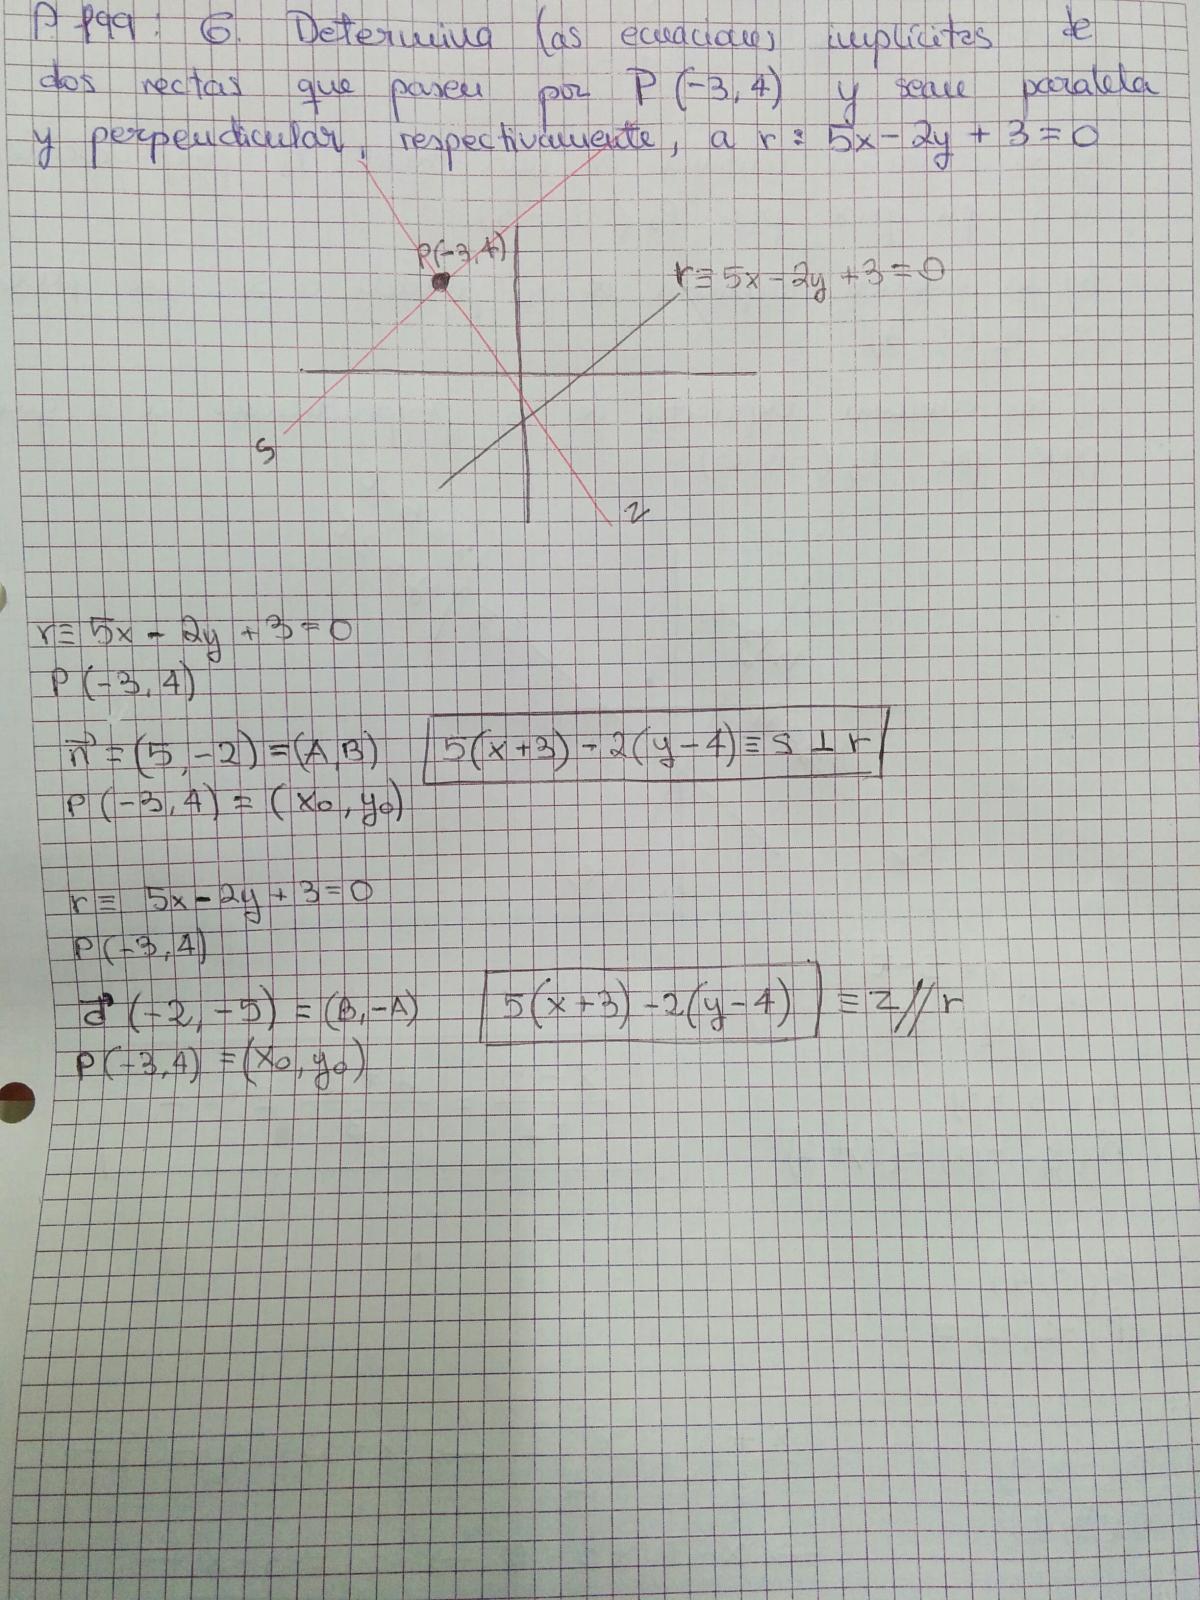 P. P99: 6. Determina las ecuaciones implícitas de
dos rectas que pasen por P(-3,4) y sean paralela
y perpendicular, respectivamente, a r ≡ 5x-2y+3=0
P(-3,4)
r≡ 5x-2y+3=0
s
z
r≡ 5x-2y+3=0
P(-3,4)
n⃗ = (5,-2) = (A,B) 5(x+3)-2(y-4)≡ s ⊥ r
P(-3,4) = (x₀, y₀)
r≡ 5x-2y+3=0
P(-3,4)
d⃗ (-2,-5) = (B,-A) 5(x+3)-2(y-4) ≡ z // r
P(-3,4) = (x₀, y₀)